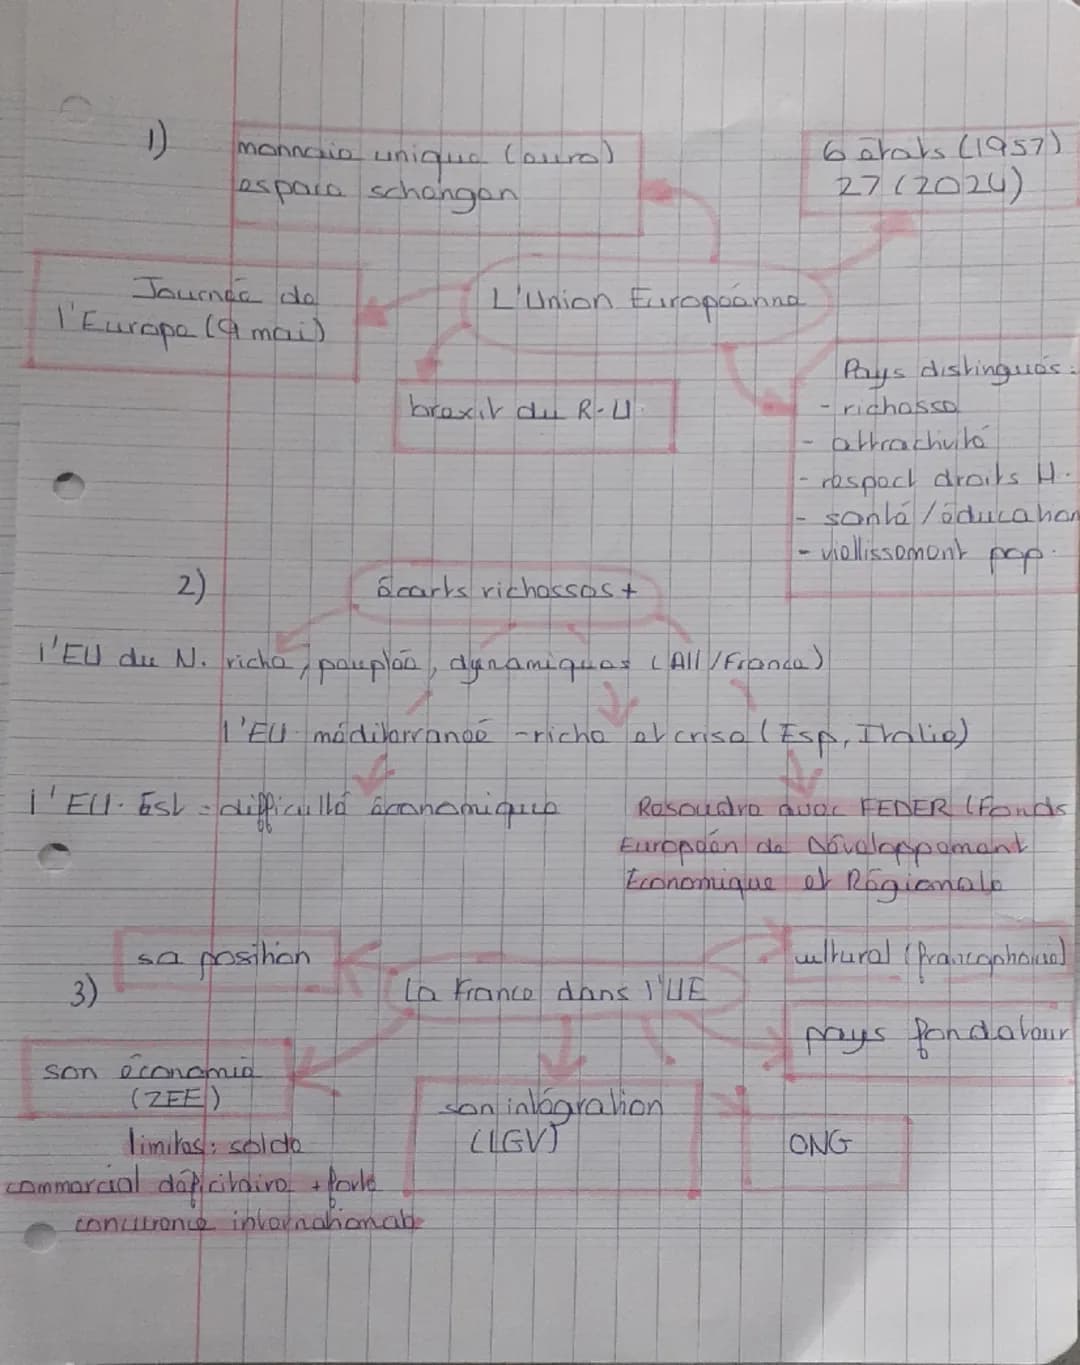 1)
monnaie unique (euro)
espace schengen
6 états (1957)
27 (2024)
Journée de
l'Europe (9 mai)
L'Union Européenne
brexit du R-U
Pays distingués :
- richesse
- attractivité
- respect droits H.
- santé / éducation
- viellissement pop.
2)
écarts richesses +
l'EU du N. riche, peuplée, dynamiques (All/France)
l'EU méditerranée - riche et crise (Esp, Italie)
l'EU. Est = difficulté économique
Resoudre avec FEDER (Fonds
Européen de Développement
Economique et Régionale
3)
sa position
La France dans l'UE
culturel (francophonie)
pays fondateur
son économie
(ZEE)
limites : solde
commercial déficitaire + forte
concurrence internationale
son intégration
(LGV)
ONG